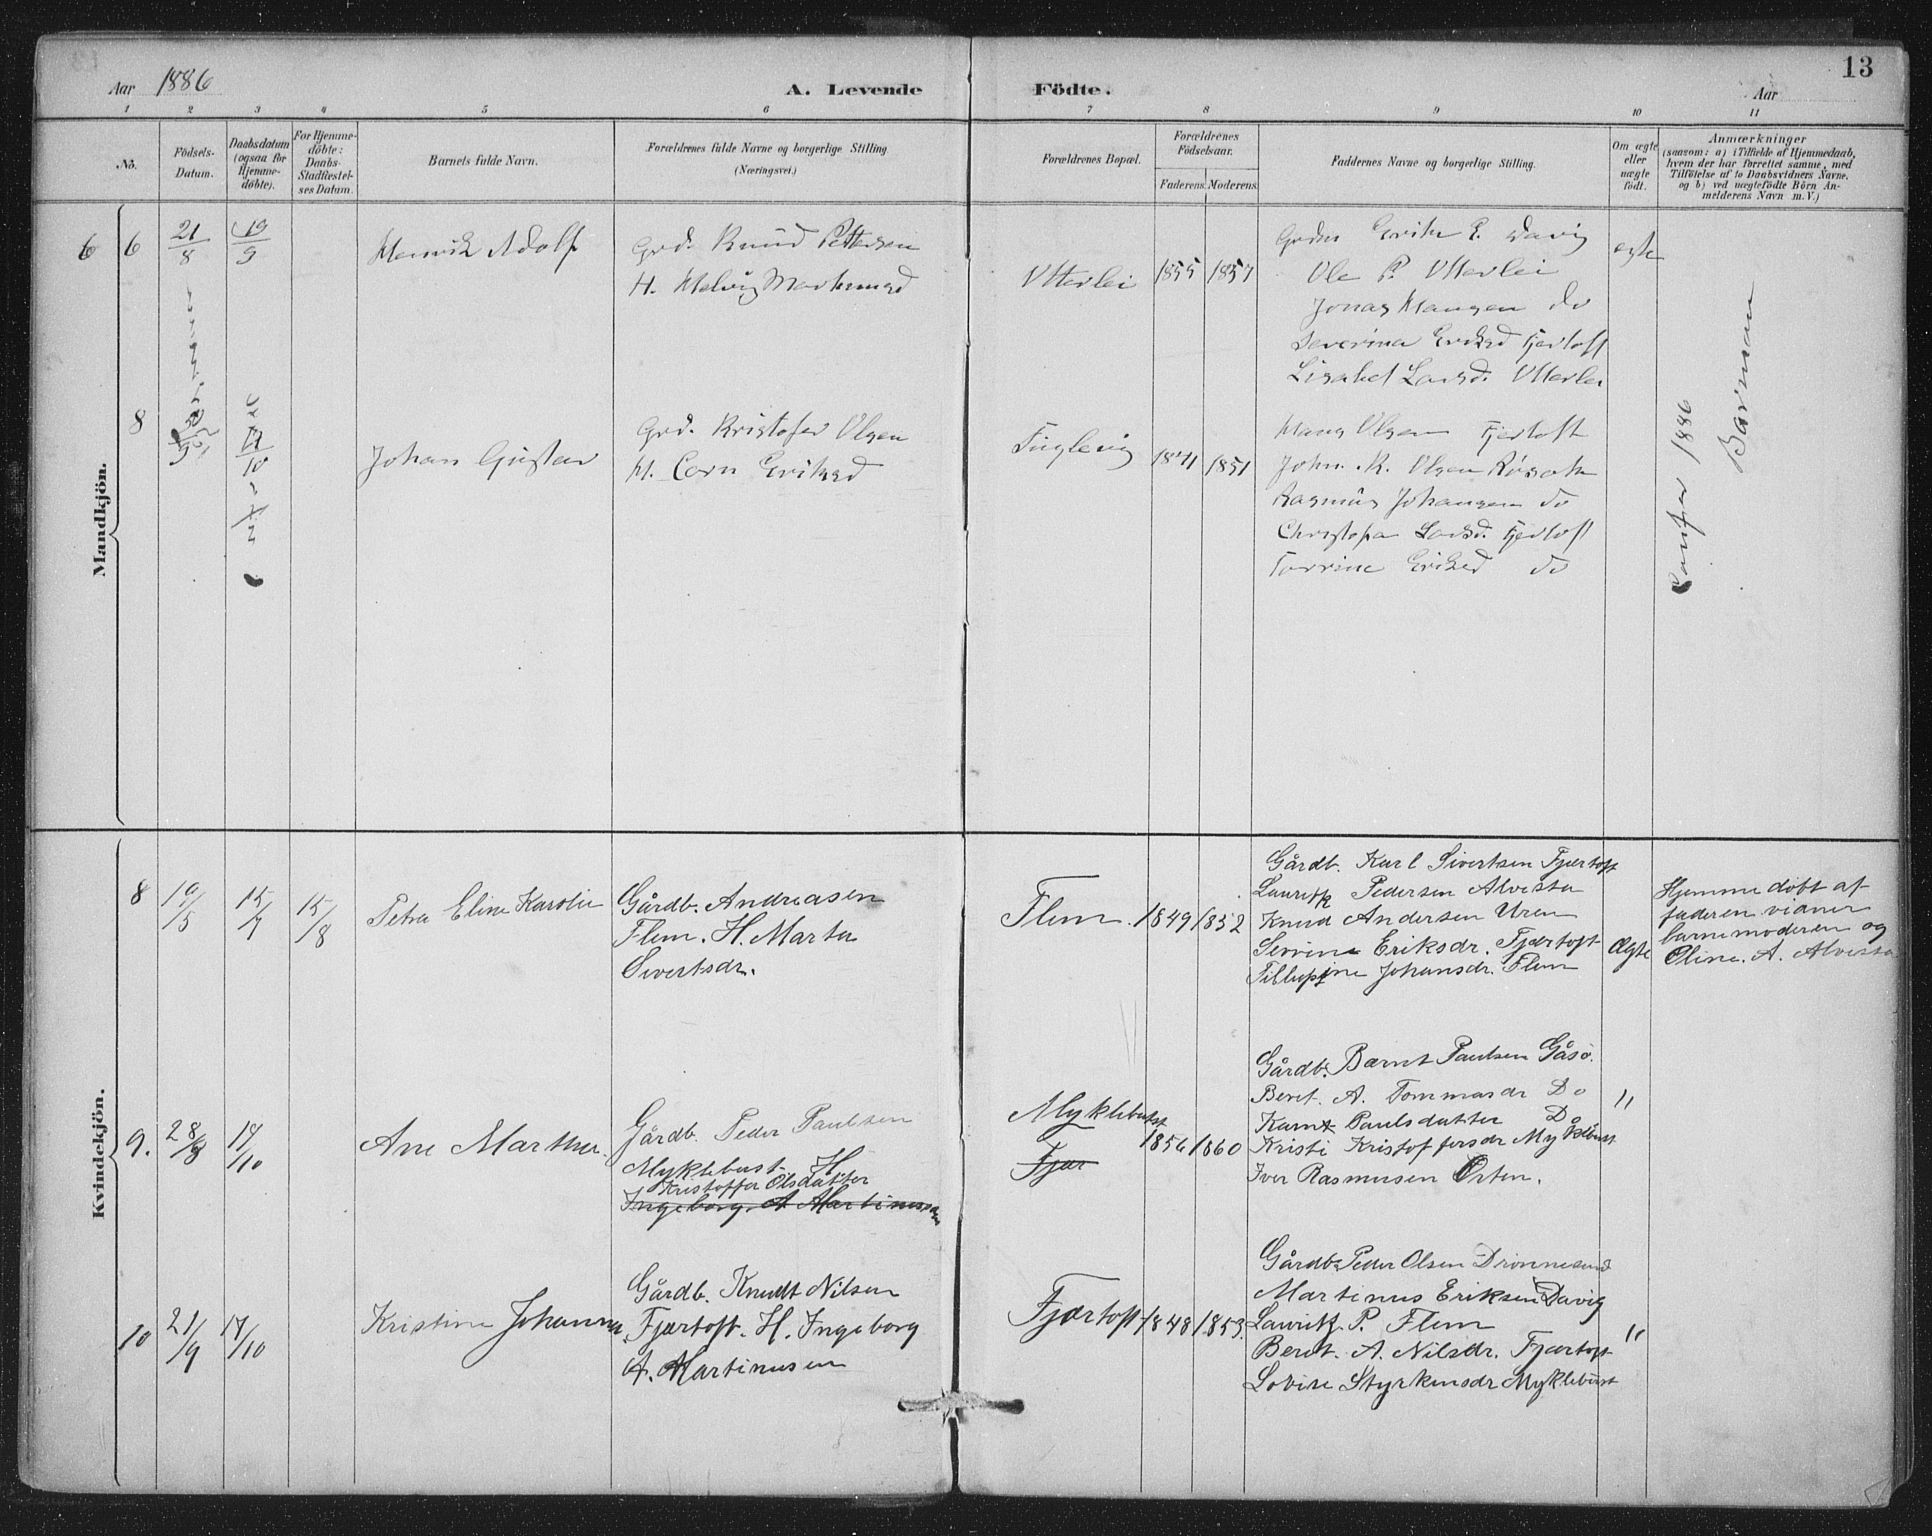 13
Aar 1886
A. Levende Födte.
Aar
1 2 3 4 5 6 7 8 9 10 11
No.
Födsels-Datum.
Daabsdatum (ogsaa for Hjemme-döbte).
For Hjemme-döbte: Daabs-Stadfæstel-ses Datum.
Barnets fulde Navn.
Forældrenes fulde Navne og borgerlige Stilling (Næringsvei.)
Forældrenes Bopæl.
Forældrenes Födselsaar.
Faderens. Moderens.
Faddernes Navne og borgerlige Stilling.
Om ægte eller uægte födt.
Anmærkninger
(saasom: a) i Tilfælde af Hjemmedaab, hvem der har forrettet samme, med Tilföielse af to Daabsvidners Navne. og b) ved uægtefödte Börn An-melderens Navn m. V.)
Mandkjön.
6 6 21/8 19/9
Henrik Adolf
Grd. Knud Pettersen
H. Melvig
Utterlei 1855 1857
Erik E. Davig
Ole P. Utterlei
Jonas Hansen do
Severina Eriksd Fjertoft
Lisabet Larsd. Utterlei
ægte
8
Johan Gustav
Grd. Kristofer Olsen
H. Eriksd
Fuglevig 1841 1851
Hans Olsen Fjertoft
John. K. Olsen
Rasmus Johansen do
Larsd. Fjertoft
Eriksd do
1886
Kvindekjön.
8 19/5 15/7 15/8
Petra Eline Karolie
Gårdb. Andreasen
Flem. H. Marta
Sivertsdr.
Flem. 1849 1852
Gårdb. Karl Sivertsen Fjærtoft
Lauritz Pedersen Alvesta
Knud Andersen Uren
Eriksdr. Fjærtoft
Johansdr. Flem
Ægte
Hjemme døbt af
faderen vidner
barnemoderen og
Oline. A. Alvesta
9. 28/8 17/10
Ane Marthea.
Gårdb. Peder Paulsen
Myklebust. H
Kristoffer Olsdatter
Ingeborg. A Martinusen
Myklebust
Fjær
1856 1860
Gårdb. Bernt Paulsen Gåsø.
Beret. A. Tommasdr Do
Paulsdatter Do
Kristi Kristoffersdr Myklebust
Iver Rasmusen Orten.
"
10 21/9 17/10
Kristine Johanna
Gårdb. Knudt Nilsen
Fjærtoft. H. Ingeborg
A. Martinusen
Fjærtoft. 1848 1853.
Gårdb. Peder Olsen Drønnesund
Martinus Eriksen Davig
Lauritz. P. Flem
Beret. A. Nilsdr. Fjærtoft
Lovise Styrkersdr Myklebust
"